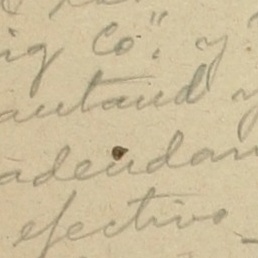 ig Co", y
autaud y
adeudan
efectivo